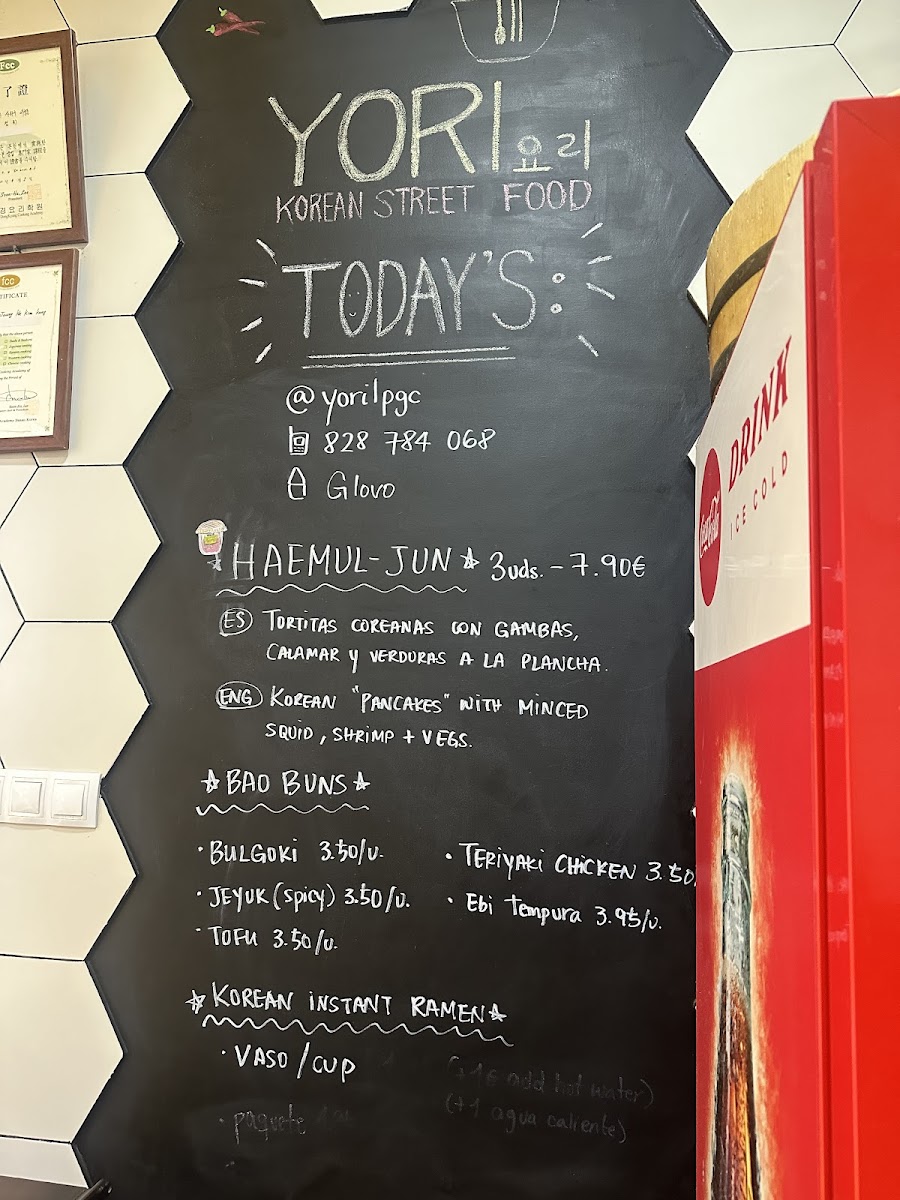 YORI 요리
KOREAN STREET FOOD
TODAY'S:
@yorilpgc
828 784 068
Glovo
HAEMUL-JUN 3uds. - 7.90€
ES TORTITAS COREANAS CON GAMBAS,
CALAMAR Y VERDURAS A LA PLANCHA.
ENG KOREAN "PANCAKES" WITH MINCED
SQUID, SHRIMP + VEGS.
BAO BUNS
· BULGOKI 3.50/U.
· JEYUK (SPICY) 3.50/U.
· TOFU 3.50/U.
· TERIYAKI CHICKEN 3.50
· Ebi Tempura 3.95/U.
KOREAN INSTANT RAMEN
· VASO/CUP
(+1€ add hot water)
(+1 agua caliente)
· paquete
fcc
了證
fcc
Coca-Cola
DRINK
ICE COLD